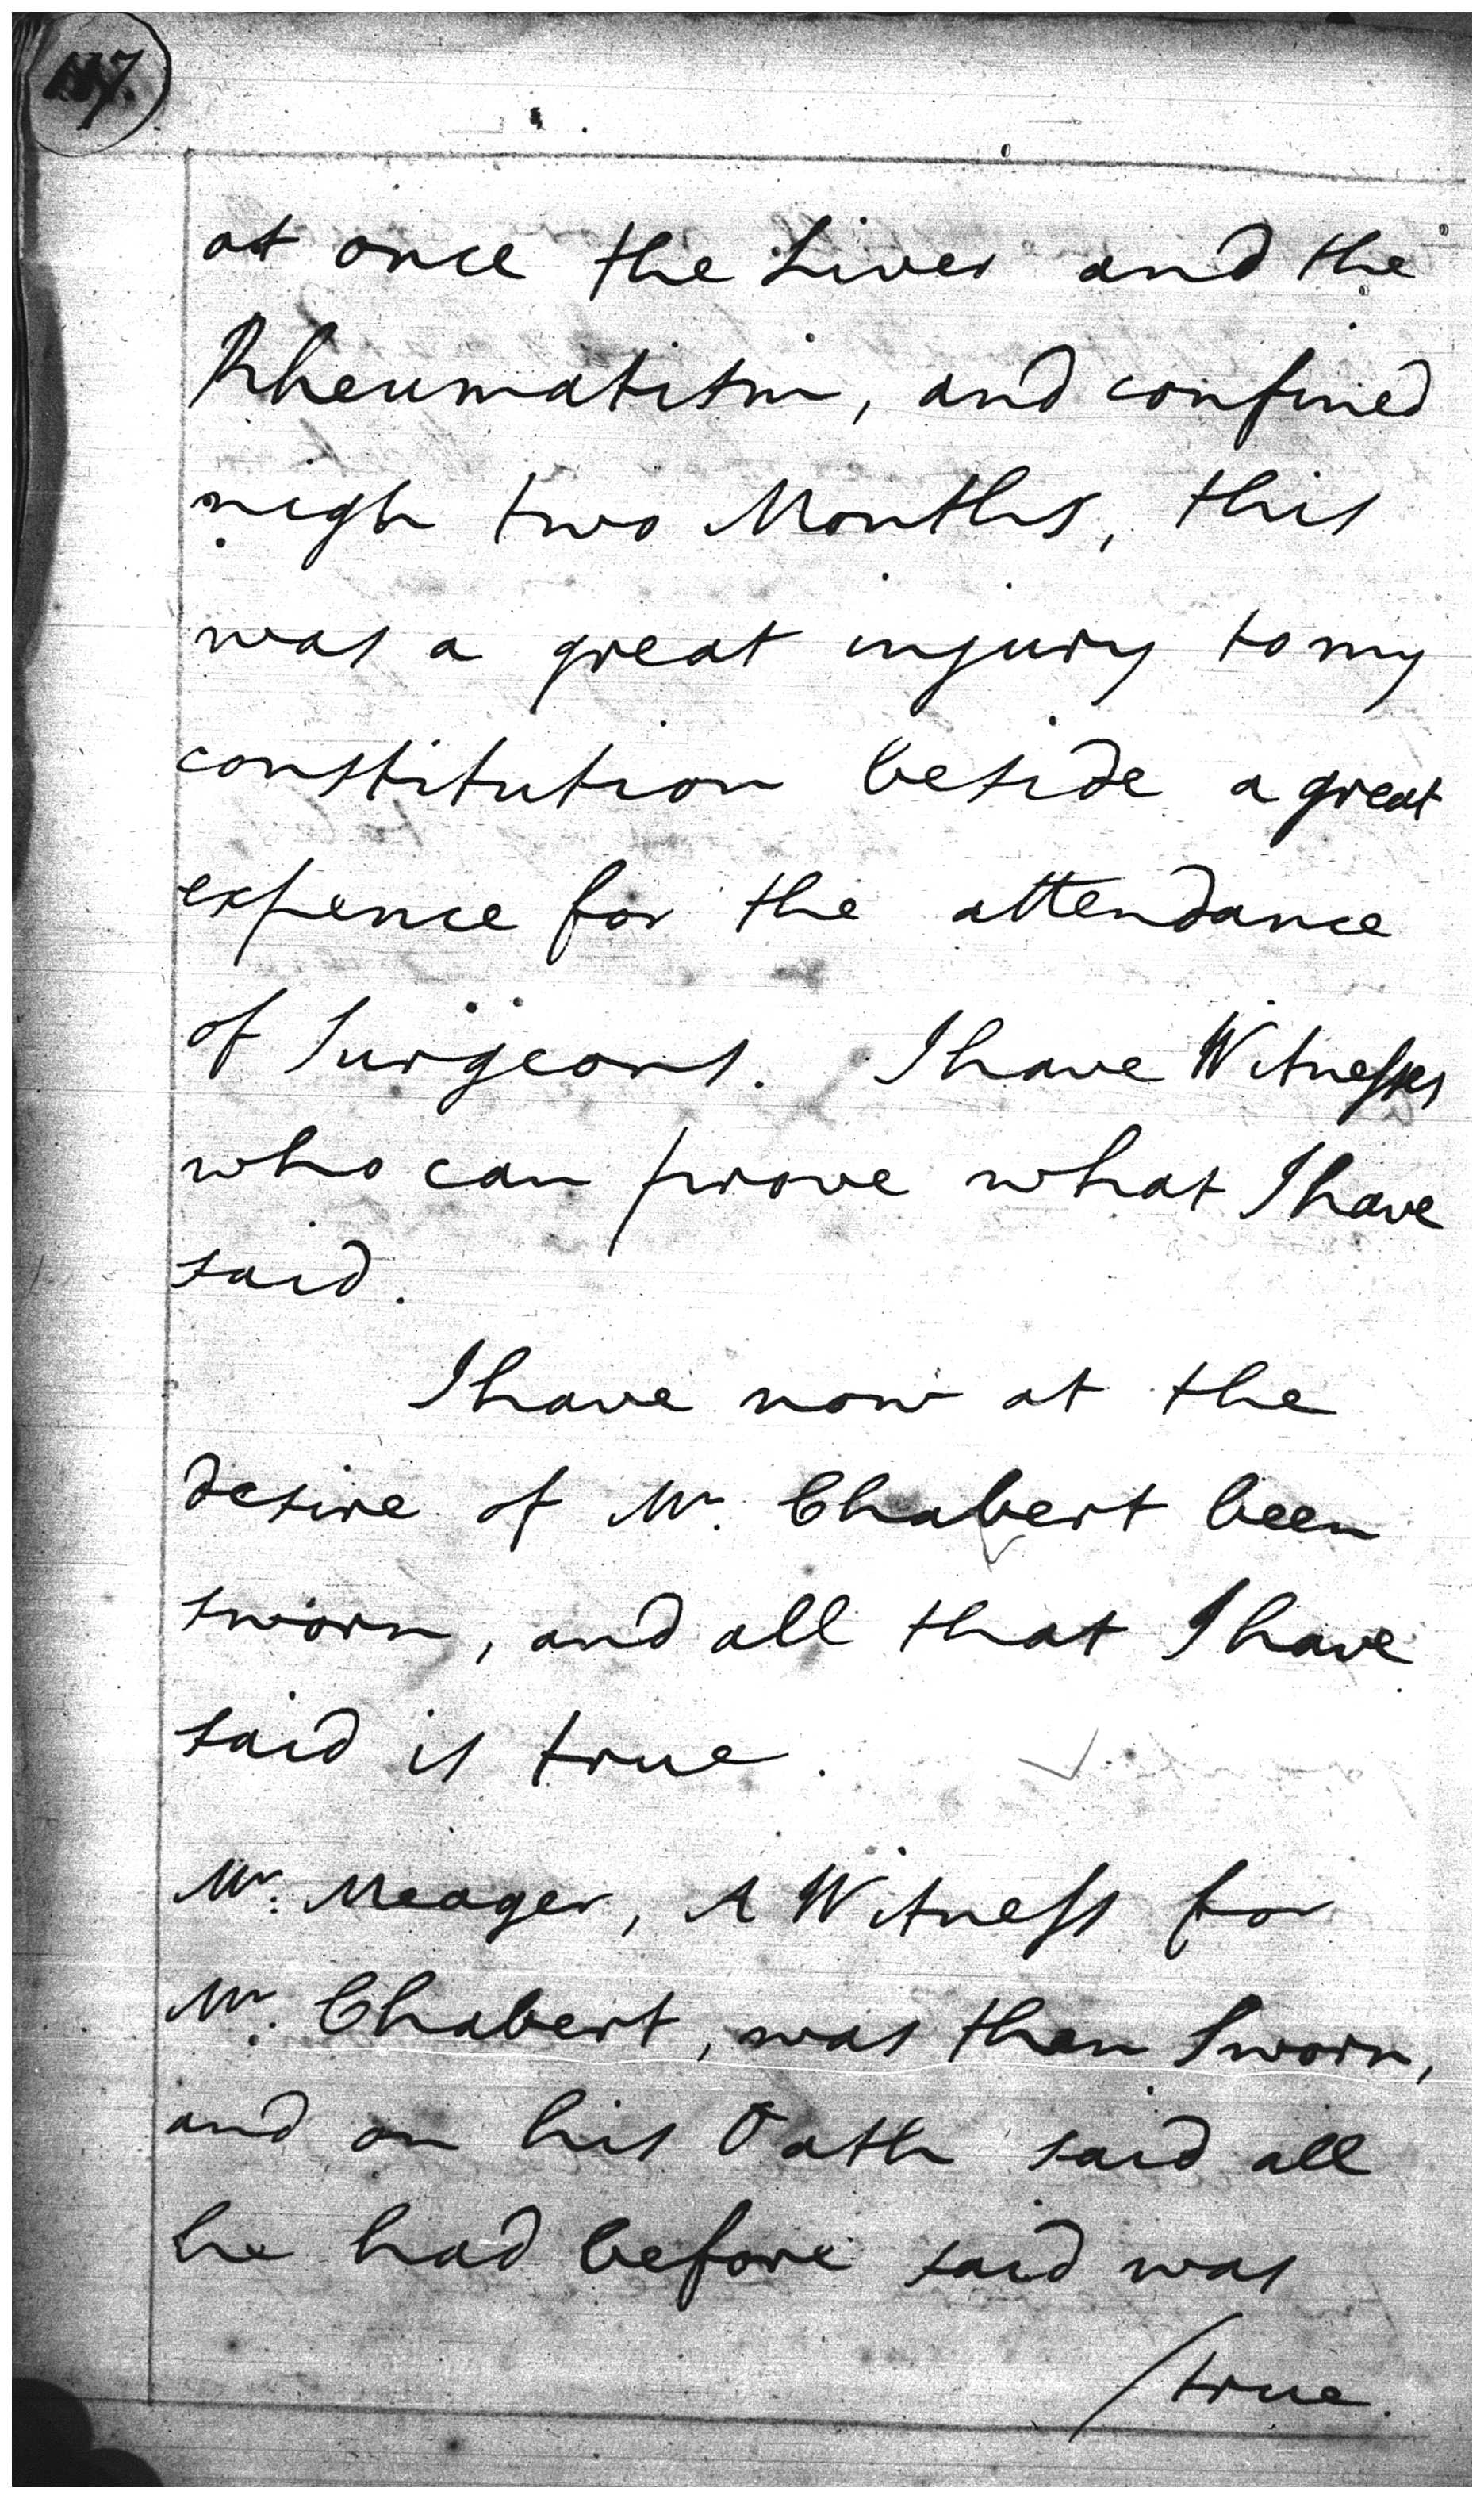 at once the Liver and the
Rheumatism, and confined
nigh two Months, this
was a great injury to my
constitution beside a great
expence for the attendance
of Surgeons. I have Witnesses
who can prove what I have
said.
I have now at the
desire of Mr. Chabert been
sworn, and all that I have
said is true.
Mr. Meager, A Witness for
Mr. Chabert, was then Sworn,
and on his Oath said all
he had before said was
/true.